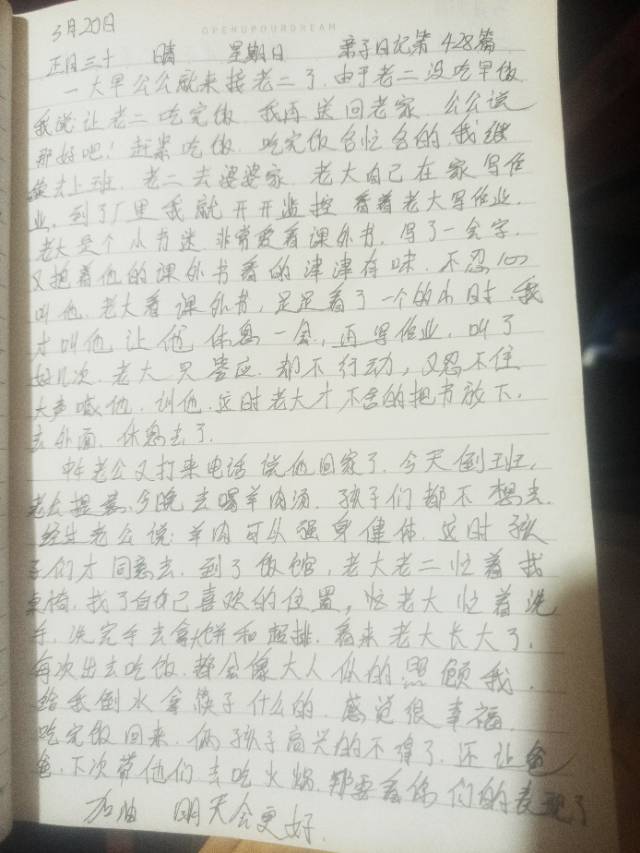 OPENUPOURDREAM
3月20日
正月三十 晴 星期日 亲子日记第428篇
一大早公公就来接老二了，由于老二没吃早饭
我说让老二吃完饭，我再送回老家，公公说
那好吧！赶紧吃饭，吃完饭各忙各的我继
续去上班，老二去婆婆家，老大自己在家写作
业，到了厂里我就开开监控，看着老大写作业，
老大是个小书迷非常爱看课外书，写了一会字，
又抱着他的课外书看的津津有味，不忍心
叫他，老大看课外书，足足看了一个的小时，我
才叫他，让他休息一会，再写作业，叫了
好几次，老大只答应，都不行动，又忍不住
大声喊他，训他，这时老大才不舍的把书放下，
去外面，休息去了，
中午老公又打来电话说他回家了，今天倒班，
老公提议今晚去喝羊肉汤，孩子们都不想去，
老公说：羊肉可以强身健体，这时孩
子们才同意去，到了饭馆，老大老二忙着找
桌椅，找了自己喜欢的位置，老大忙着洗
手，洗完手去拿饼和，看来老大长大了，
每次出去吃饭，都会像大人似的照顾我，
给我倒水拿筷子什么的，感觉很幸福，
吃完饭回来，俩孩子高兴的不得了，还让爸
爸，下次带他们去吃火锅，那要看你们的表现了
加油 明天会更好，